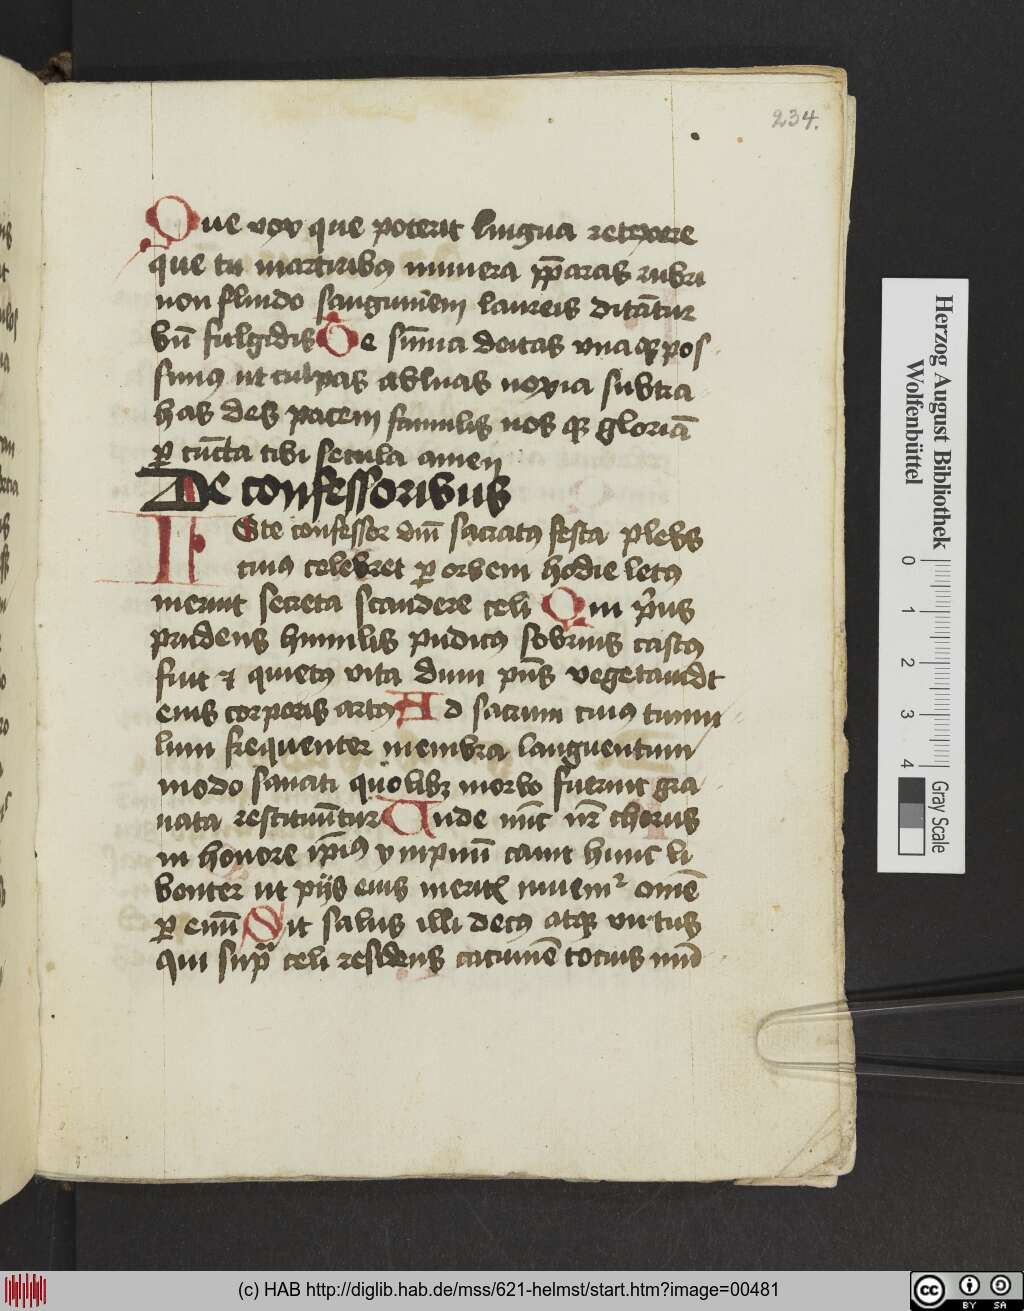 234.
Que vox que poterit lingua retexere
que tu martiribꝯ munera p̄paras rubri
non fluido sanguinē em laureis ditātur
bn̄ fulgidis Te sūma deitas vnaqꝫ pos
simꝯ ut culpas abluas noxia subtra
has des pacem famulis nos qꝫ gloriā
ꝑ cūcta tibi secula amen
De confessoribus
ISte confessor dm̄ sacratꝯ festa plebs
cuiꝯ celebret ꝑ orbem hodie letꝯ
meruit secreta scandere celi Qui p̓us
prudens humilis pudicꝯ sobrius castꝯ
fuit ⁊ quietꝯ vita dum pn̄s vegetauit
eius corporis artꝯ Ad sacrum cuiꝯ tumu
lum frequenter membra languentum
modo sanati quolibꝫ morbo fuerint gra
uata restituūtur Unde nūc nr̄ chorus
in honore ip̄ius ympnū canit hunc li
benter ut pijs eius meritꝭ iuuem² omē
ꝑ euū Sit salus illi decꝯ atqꝫ virtus
qui supᵃ celi residens cacumē tocius mūd
Herzog August Bibliothek
Wolfenbüttel
0 1 2 3 4
Gray Scale
(c) HAB http://diglib.hab.de/mss/621-helmst/start.htm?image=00481
cc BY SA